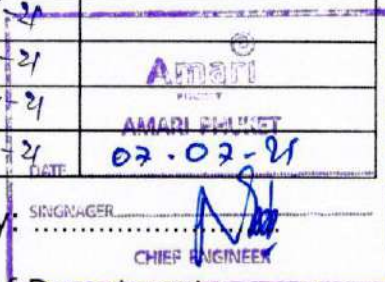 -21
-21
Amari
PHUKET
-21
AMARI PHUKET
-21
DATE 07-07-21
SINGNAGER
CHIEF ENGINEER